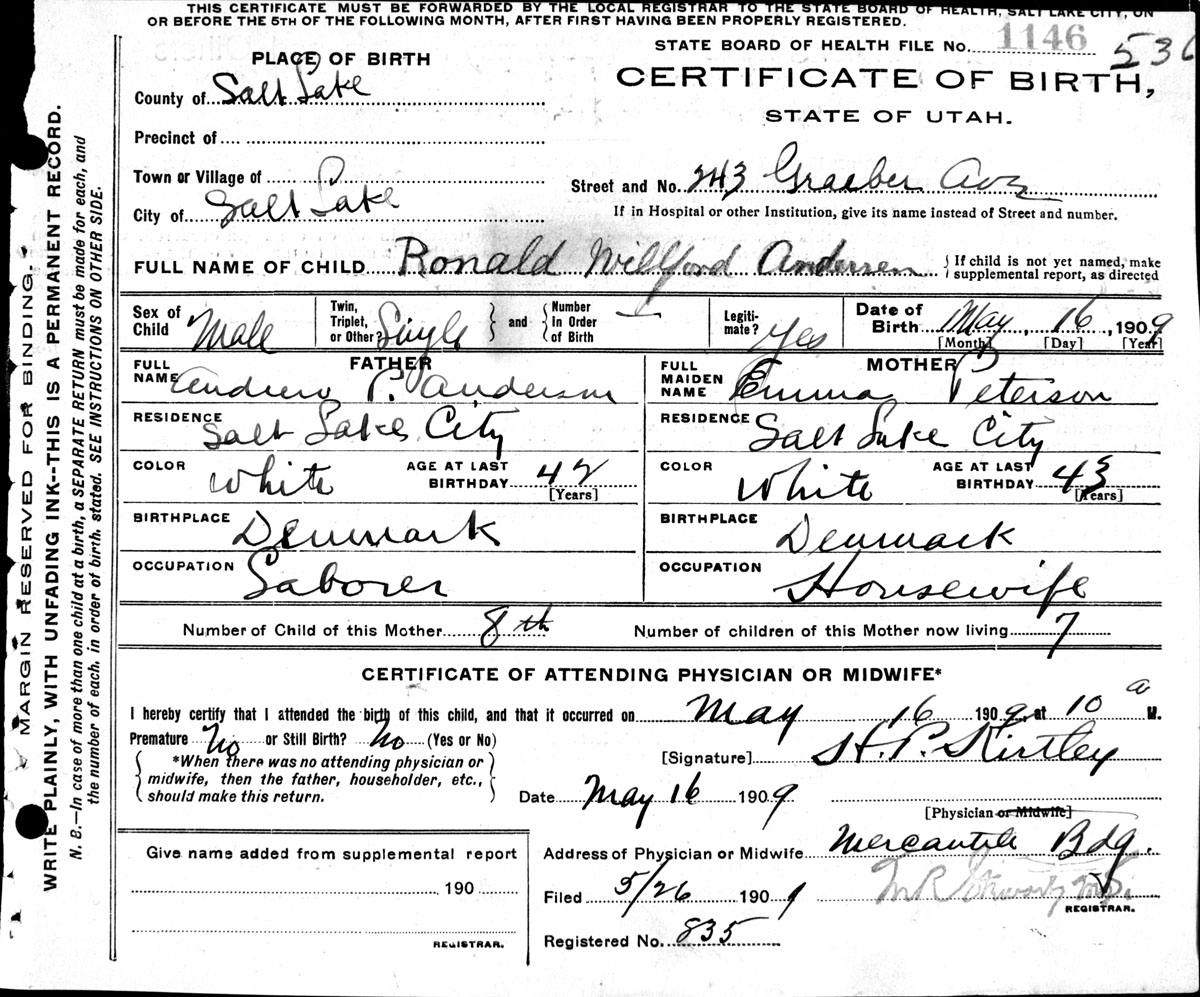 THIS CERTIFICATE MUST BE FORWARDED BY THE LOCAL REGISTRAR TO THE STATE BOARD OF HEALTH, SALT LAKE CITY, ON
OR BEFORE THE 5TH OF THE FOLLOWING MONTH, AFTER FIRST HAVING BEEN PROPERLY REGISTERED.
STATE BOARD OF HEALTH FILE No. 1146 536
PLACE OF BIRTH
CERTIFICATE OF BIRTH,
STATE OF UTAH.
County of Salt Lake
Precinct of
Town or Village of
City of Salt Lake
Street and No. 243 Graeber Ave
If in Hospital or other Institution, give its name instead of Street and number.
FULL NAME OF CHILD Ronald Willford Andersen { If child is not yet named, make supplemental report, as directed
Sex of Child Male
Twin, Triplet, or Other? Single } and { Number in Order of Birth
Legitimate? Yes
Date of Birth May, 16, 1909
[Month] [Day] [Year]
FATHER
FULL NAME Andrew P. Anderson
RESIDENCE Salt Lake City
COLOR White AGE AT LAST BIRTHDAY 42 [Years]
BIRTHPLACE Denmark
OCCUPATION Laborer
MOTHER
FULL MAIDEN NAME Emma Peterson
RESIDENCE Salt Lake City
COLOR White AGE AT LAST BIRTHDAY 43 [Years]
BIRTHPLACE Denmark
OCCUPATION Housewife
Number of Child of this Mother 8th Number of children of this Mother now living 7
CERTIFICATE OF ATTENDING PHYSICIAN OR MIDWIFE*
I hereby certify that I attended the birth of this child, and that it occurred on May 16 1909, at 10 a M.
Premature No or Still Birth? No (Yes or No)
{ *When there was no attending physician or
midwife, then the father, householder, etc.,
should make this return. }
[Signature] H. P. Kirtley
Date May 16 1909
[Physician or Midwife]
Address of Physician or Midwife Mercantile Bdg.
Give name added from supplemental report
190
REGISTRAR.
Filed 5/26 1909
REGISTRAR.
Registered No. 835
MARGIN RESERVED FOR BINDING.
WRITE PLAINLY, WITH UNFADING INK--THIS IS A PERMANENT RECORD.
N. B.—In case of more than one child at a birth, a SEPARATE RETURN must be made for each, and
the number of each, in order of birth, stated. SEE INSTRUCTIONS ON OTHER SIDE.